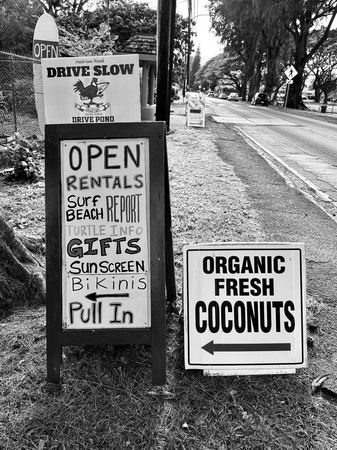 OPEN
DRIVE SLOW
DRIVE POND
OPEN
RENTALS
SURF
BEACH REPORT
TURTLE INFO
GIFTS
SUNSCREEN
BiKiNis
Pull In
ORGANIC
FRESH
COCONUTS